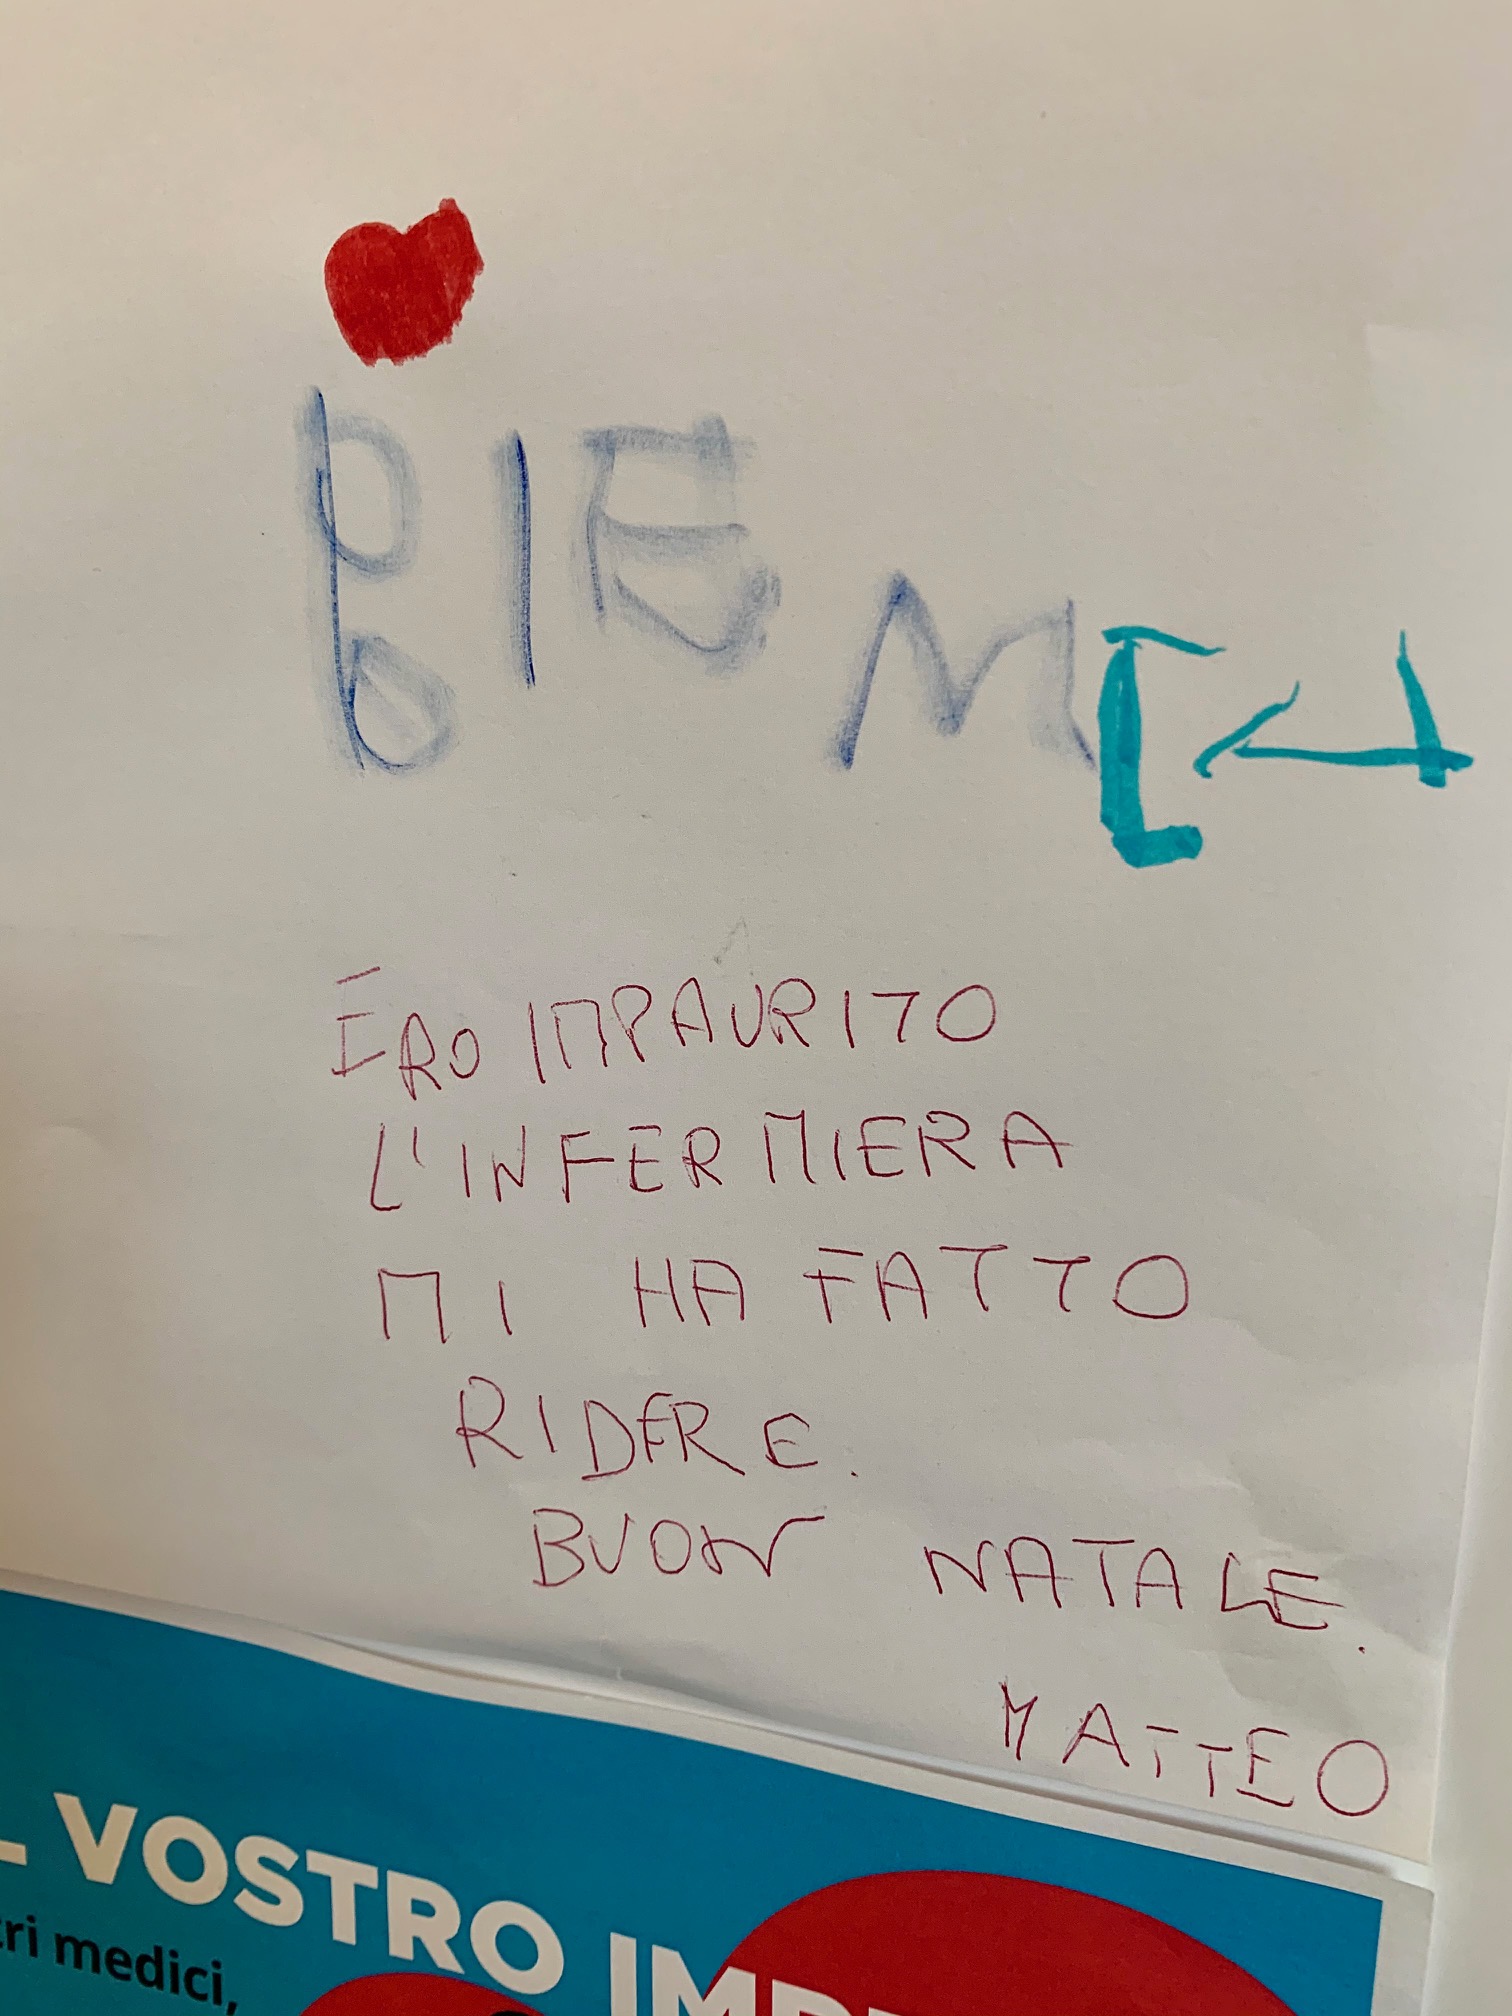 BIE
M
ERO IMPAURITO
L'INFERMIERA
MI HA FATTO
RIDERE.
BUON NATALE.
MATTEO
VOSTRO
medici,